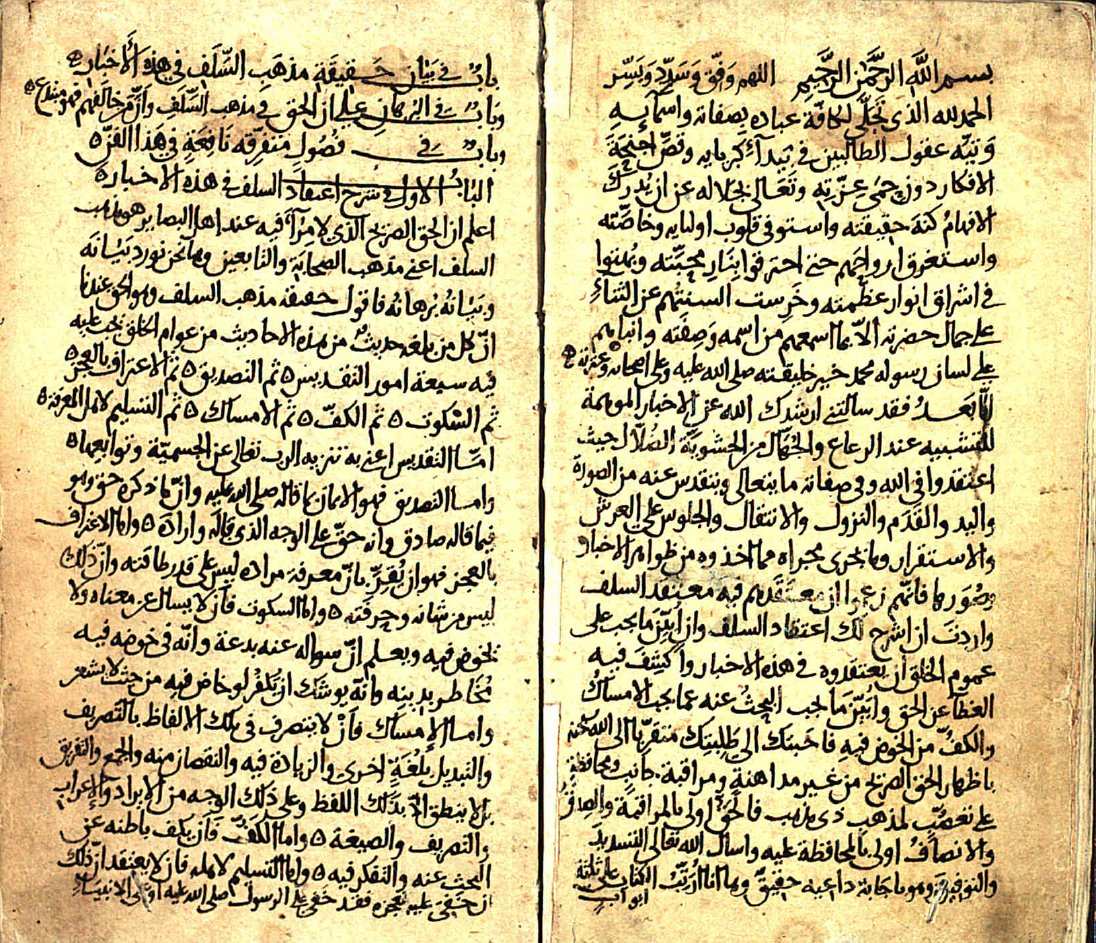 بسم الله الرحمن الرحيم اللهم وفق وسدد ويسر
الحمد لله الذي تجلى لكافة عباده بصفاته واسمآيه
وتيه عقول الطالبين في بيدآء كبريايه وقص اجنحة
الافكار دون حمى عزته وتعالى بجلاله عن ان يدرك
الافهام كنه حقيقته واستوفى قلوب اوليايه وخاصته
واستغرق ارواحهم حتى احترقوا بنار محبته وبهتوا
في اشراق انوار عظمته وخرست السنتهم عن الثناء
على جمال حضرته الا بما اسمعهم من اسمه وصفته وانباهم
على لسان رسوله محمد خير خليقته صلى الله عليه وعلى اصحابه وعترته
اما بعد فقد سالتني ارشدك الله عن الاخبار الموهمة
للتشبيه عند الرعاع والجهال من الحشوية الضلال حيث
اعتقدوا في الله وفي صفاته ما يتعالى ويتقدس عنه من الصورة
واليد والقدم والنزول والانتقال والجلوس على العرش
والاستقرار وما يجرى مجراه مما اخذوه من ظواهر الاخبار
وصورها فانهم زعموا ان معتقدهم فيه معتقد السلف
واردت ان اشرح لك اعتقاد السلف وان ابين ما يجب على
عموم الخلق ان يعتقدوه في هذه الاخبار واكشف فيه
الغطآ عن الحق وابين ما يجب البحث عنه عما يجب الامساك
والكف من الخوض فيه فاجبتك الى طلبتك متقربا الى الله سبحنه
باظهار الحق الصريح من غير مداهنة ومراقبة جانب ومحافظة
على تعصب لمذهب ذى مذهب فالحق اولى بالمراقبة والصدق
والانصاف اولى بالمحافظة عليه واسال الله تعالى التسديد
والتوفيق وهو باجابة داعيه حقيق وها انا ارتب الكتاب على ثلثة
ابواب
باب في بيان حقيقة مذهب السلف في هذه الاخبار
وباب في البرهان على ان الحق في مذهب السلف وان من خالفهم فهو مبتدع
وباب في فصول متفرقه نافعة في هذا الفن
الباب الاول في شرح اعتقاد السلف في هذه الاخبار
اعلم ان الحق الصريح الذي لا مرآء فيه عند اهل البصاير هو مذهب
السلف اعنى مذهب الصحابة والتابعين وها نحن نورد بيانه
وبيان برهانه فاقول حقيقة مذهب السلف وهو الحق عندنا
ان كل من بلغه حديث من هذه الاحاديث من عوام الخلق يجب عليه
فيه سبعة امور التقديس ثم التصديق ثم الاعتراف بالعجز
ثم السكوت ثم الكف ثم الامساك ثم التسليم لاهل المعرفة
اما التقديس اعنى به تنزيه الرب تعالى عن الجسمية وتوابعها
واما التصديق فهو الايمان بما قاله صلى الله عليه وان ما ذكره حق وهو
فيما قاله صادق وانه حق على الوجه الذى قاله واراده واما الاعتراف
بالعجز فهو ان يقر بان معرفة مراده ليس على قدر طاقته وان ذلك
ليس من شانه وحرفته واما السكوت فان لا يسال عن معناه ولا
يخوض فيه ويعلم ان سواله عنه بدعة وانه في خوضه فيه
مخاطر بدينه وانه يوشك ان يكفر لو خاض فيه من حيث لا يشعر
واما الامساك فان لا يتصرف في تلك الالفاظ بالتصريف
والتبديل بلغة اخرى والزيادة فيه والنقصان منه والجمع والتفريق
بل لا ينطق الا بذلك اللفظ وعلى ذلك الوجه من الايراد والاعراب
والتصريف والصيغة واما الكف فان يكف باطنه عن
البحث عنه والتفكر فيه واما التسليم لاهله فان لا يعتقد ان ذلك
ان خفى عليه لعجزه فقد خفى على الرسول صلى الله عليه او على الانبياء